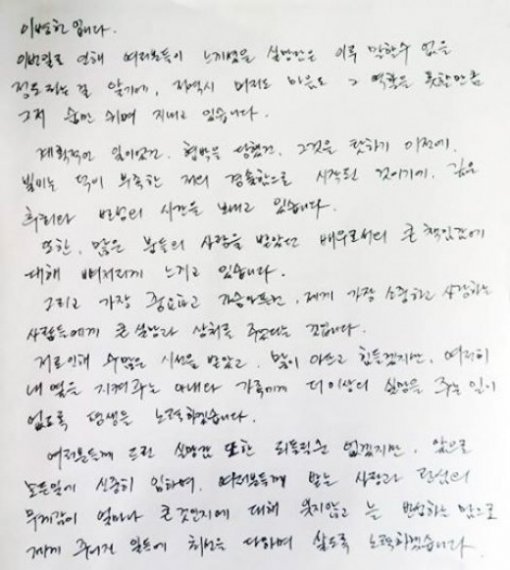 이병헌입니다.
이번일로 인해 여러분들이 느끼셨을 실망감은 이루 말할수 없을
정도라는걸 알기에, 저역시 머리도 마음도 그 역할을 못할만큼
그저 숨만 쉬며 지내고 있습니다.
계획적인 일이었건, 협박을 당했건, 그것을 탓하기 이전에,
빌미는 덕이 부족한 저의 경솔함으로 시작된 것이기에, 깊은
후회와 반성의 시간을 보내고 있습니다.
또한, 많은 분들의 사랑을 받았던 배우로서의 큰 책임감에
대해 뼈저리게 느끼고 있습니다.
그리고 가장 중요하고 가슴아프면, 제게 가장 소중하고 사랑하는
사람들에게 큰 실망과 상처를 주었다는 것입니다.
저로인해 수많은 시선을 받았고, 많이 아프고 힘들겠지만, 여전히
내 옆을 지켜주는 아내와 가족에게 더이상의 실망을 주는 일이
없도록 평생을 노력하겠습니다.
여러분들께 드린 실망감 또한 되돌릴순 없겠지만, 앞으로
모든일에 신중히 임하며, 여러분들께 받는 사랑과 관심의
무게감이 얼마나 큰 것인지에 대해 잊지않고 늘 반성하는 맘으로
제게 주어진 일들에 최선을 다하며 살도록 노력하겠습니다.